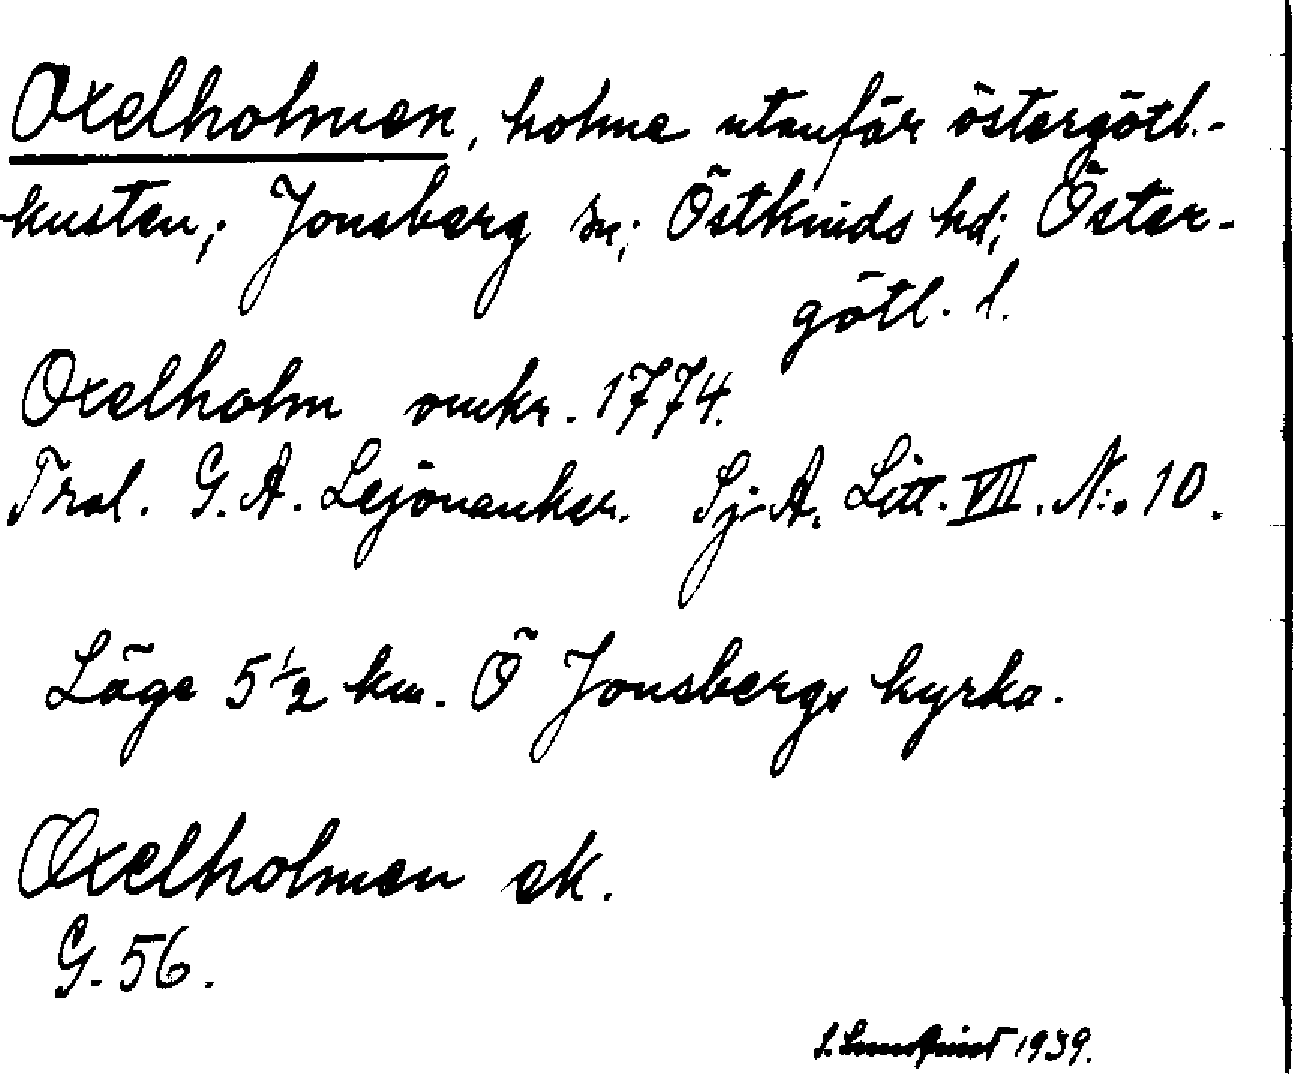 Oxelholmen, holme utanför östergötl.-
kusten; Jonsberg sn; Östkinds hd; Öster-
götl. l.
Oxelholm omkr. 1774.
Trol. G. A. Lejonanker. Sj. A. Litt. VII. N:o 10.
Läge 5 1/2 km. Ö Jonsbergs kyrka.
Oxelholmen ek.
G. 56.
1939.